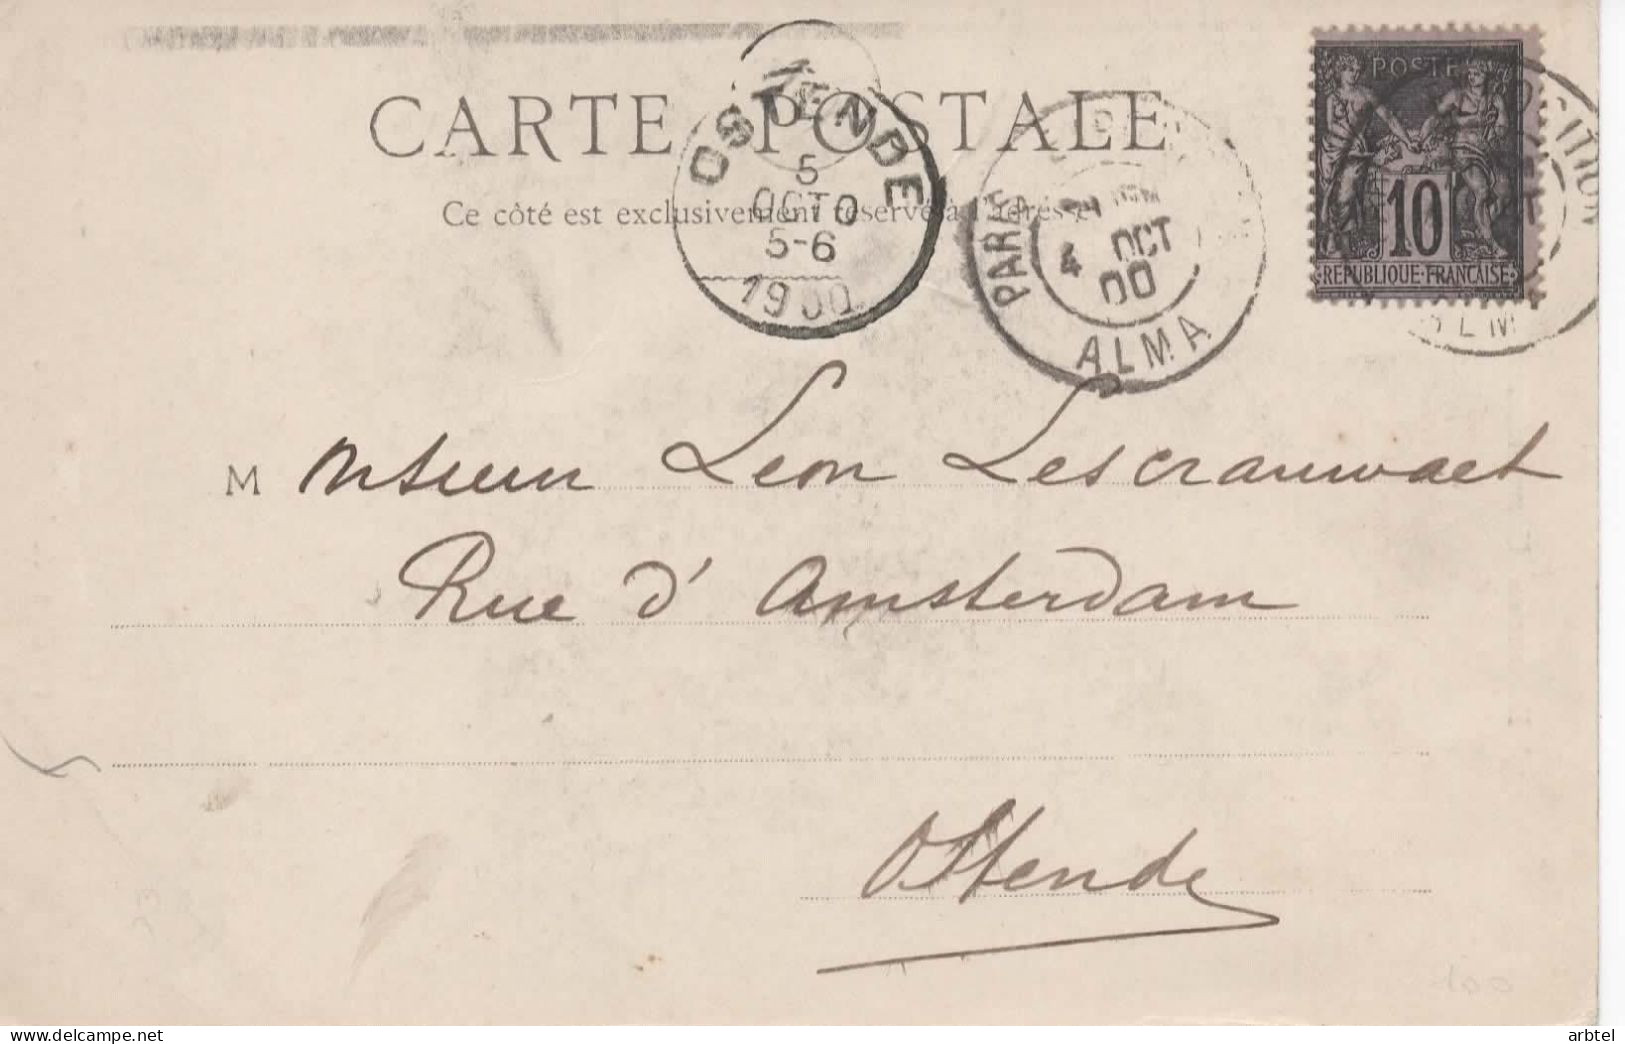 CARTE POSTALE
Ce côté est exclusivement réservé à l'adresse
OSTENDE
5
OCTO
5-6
1900
PARIS
4 OCT
00
ALMA
POSTE
10
REPUBLIQUE FRANCAISE
M onsieur Leon Lescrauwaet
Rue d' Amsterdam
Ostende
100
arbtel